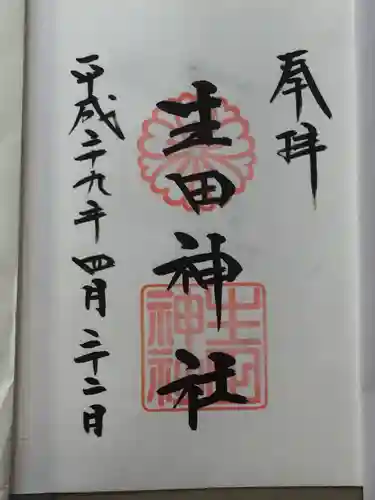 奉拝
生田神社
生田神社
平成二十九年四月二十二日